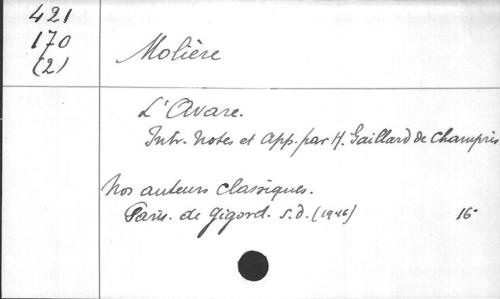 421
170
(2)
Molière
L'Avare.
Intr. Notes et App. par H. Gaillard de Champris
Nos auteurs classiques.
Paris. de Gigord. s.d. (1946)
16°